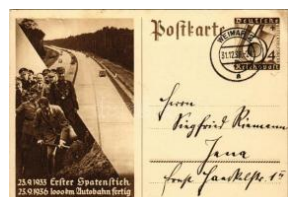 Postkarte
Deutsche
Reichspost
4
WEIMAR
31.12.36
a
Herrn
Siegfried Riemann
Jena
Ernst Haeckelstr 15
23.9.1933 Erster Spatenstich
25.9.1936 1000 km Autobahn fertig